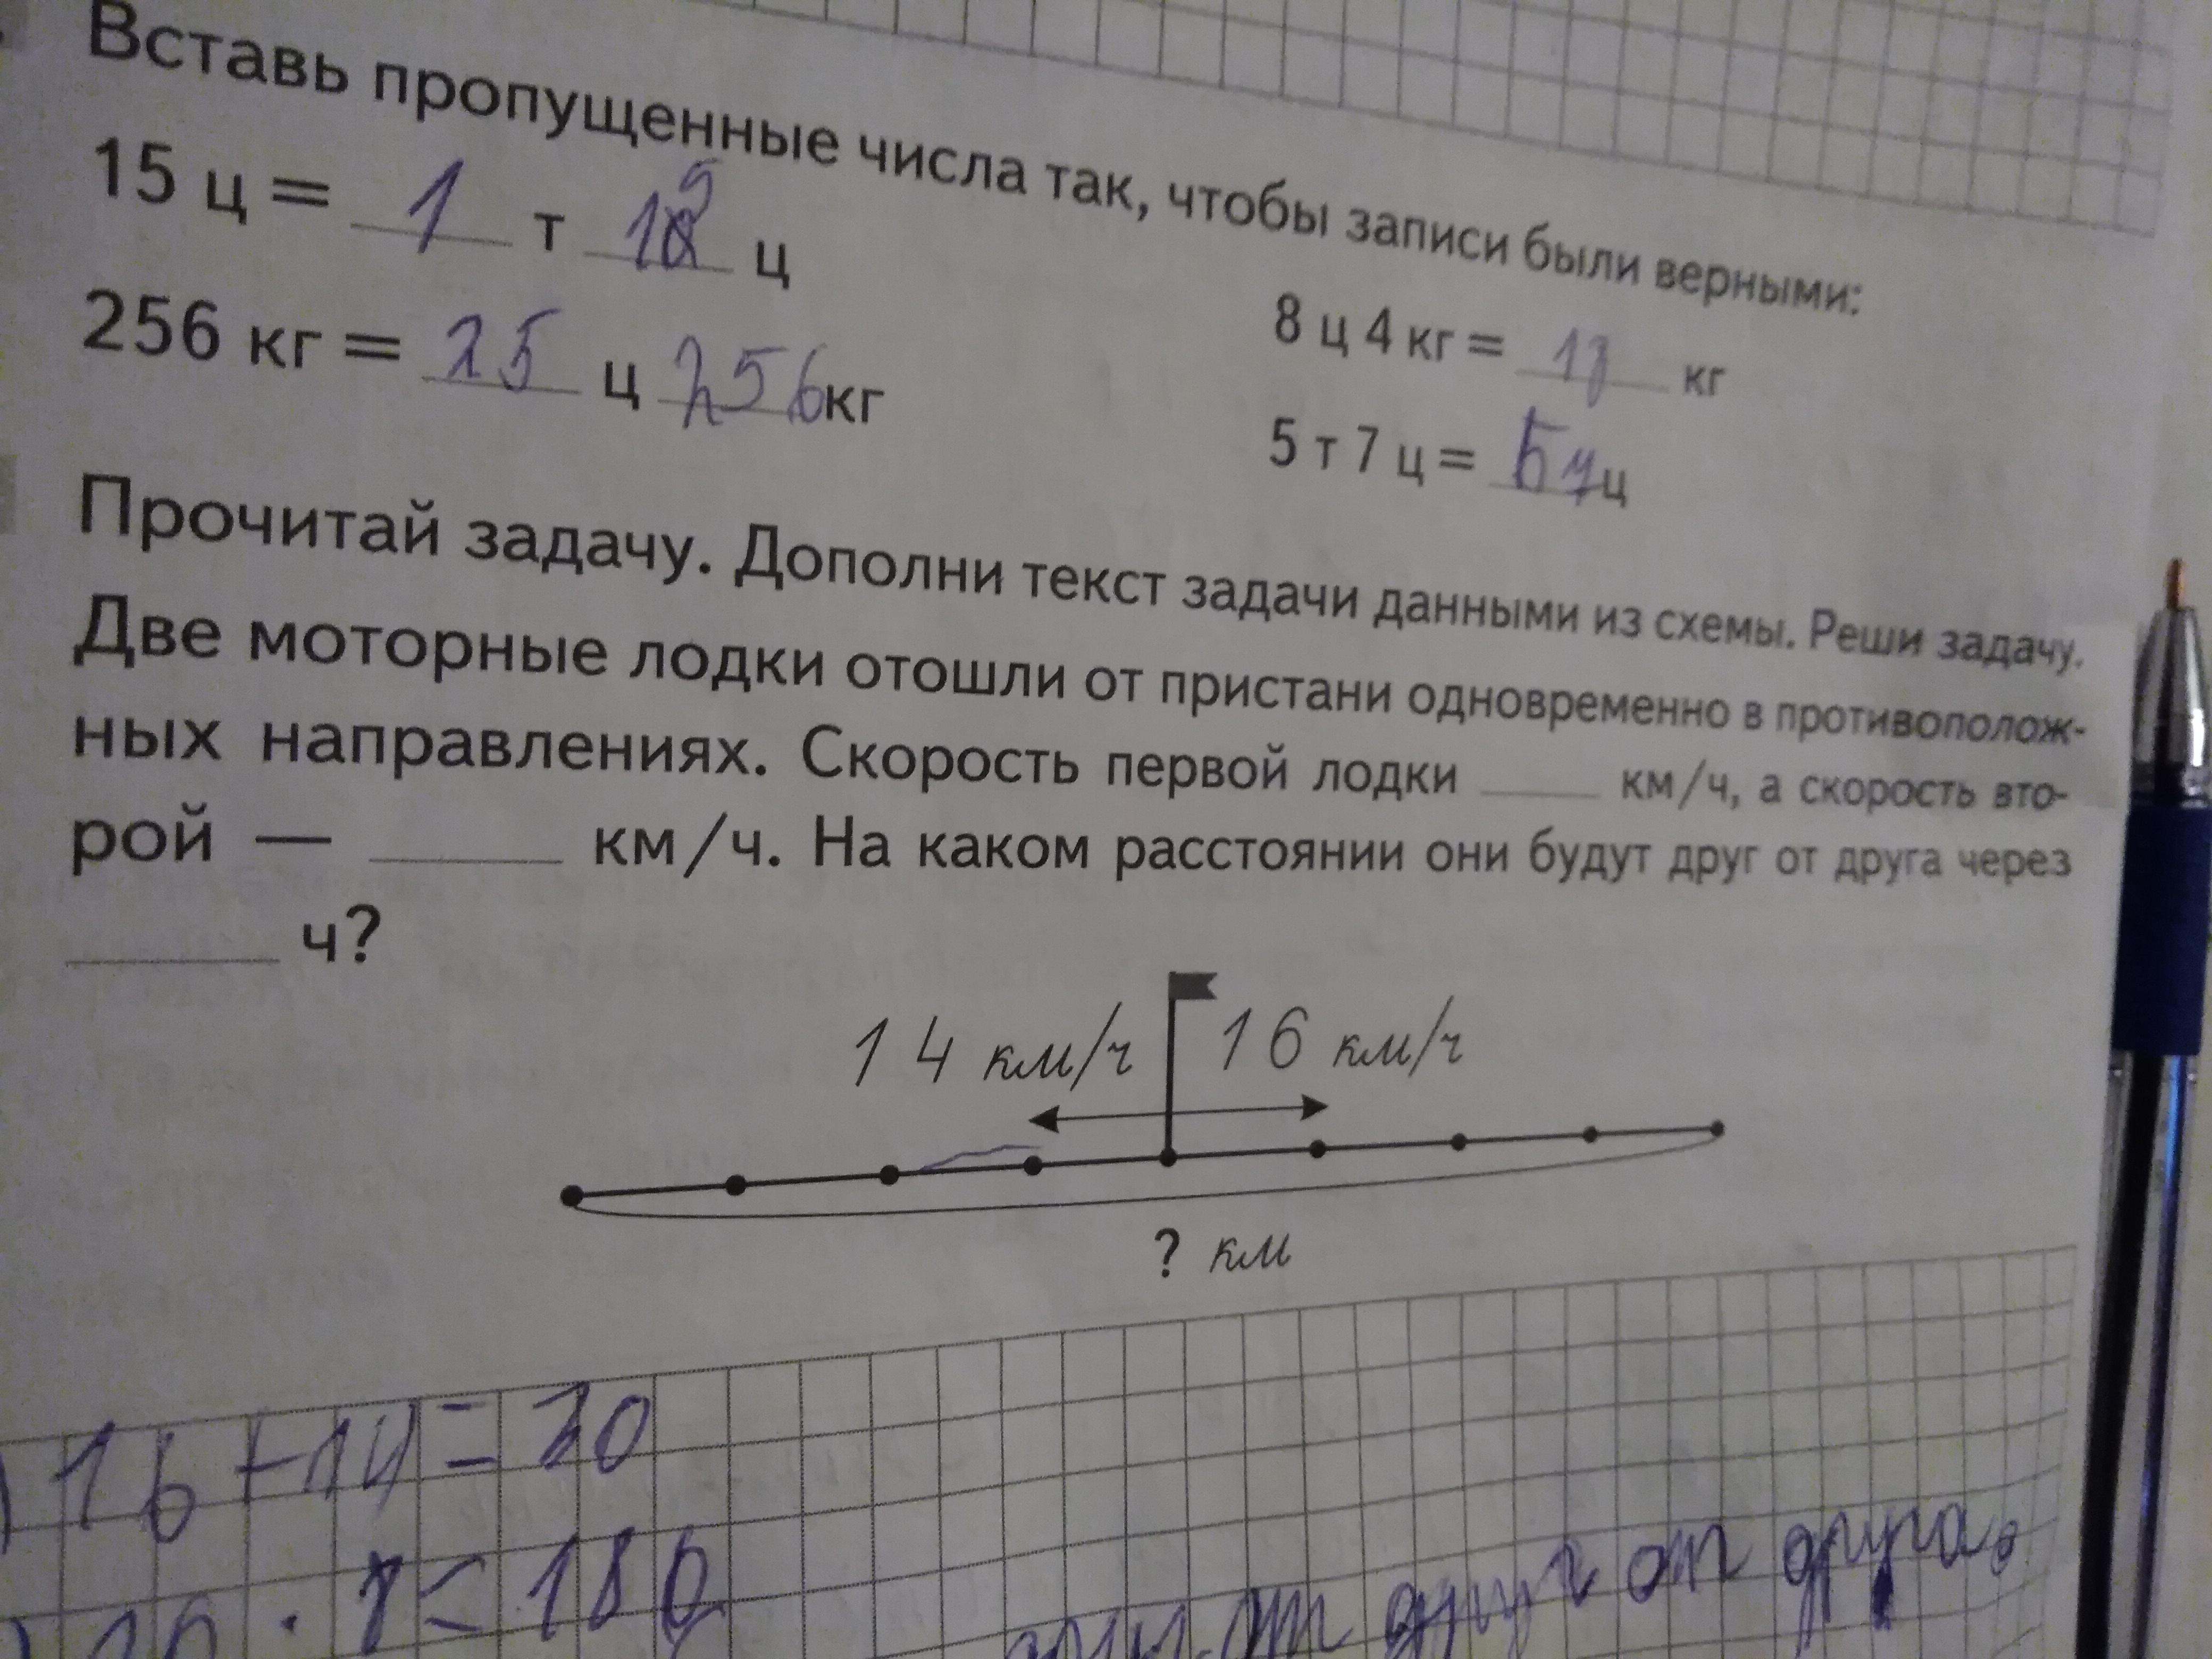 Вставь пропущенные числа так, чтобы записи были верными:
15 ц = 1 т 5 ц
8 ц 4 кг = кг
256 кг = 25 ц 256 кг
5 т 7 ц = 57 ц
Прочитай задачу. Дополни текст задачи данными из схемы. Реши задачу.
Две моторные лодки отошли от пристани одновременно в противополож-
ных направлениях. Скорость первой лодки ____ км/ч, а скорость вто-
рой — ____ км/ч. На каком расстоянии они будут друг от друга через
____ ч?
14 км/ч 16 км/ч
? км
) 16+14=30
= 180
друг от друга.